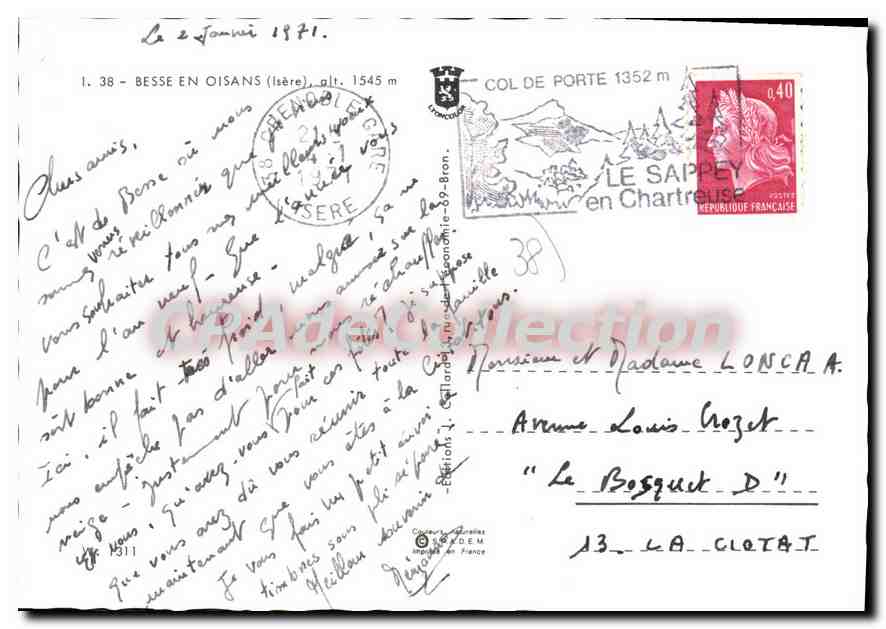 Le 2 Janvier 1971.
1. 38 – BESSE EN OISANS (Isère), alt. 1545 m
LYONCOLOR
38 GRENOBLE GARE
ISERE
COL DE PORTE 1352 m
LE SAPPEY
en Chartreuse
0,40
POSTES
REPUBLIQUE FRANÇAISE
Chers amis,
C'est de Besse où nous
sommes venus réveillonner que je viens
vous souhaiter tous nos meilleurs voeux
pour l'an neuf. Que l'année vous
soit bonne et heureuse.
Ici, il fait très froid, malgré, ça ne
nous empêche pas d'aller nous amuser sur la
neige – justement pour nous réchauffer.
Et vous, qu'avez-vous fait pour ces fêtes? Je suppose
que vous avez dû vous réunir toute la famille
maintenant que vous êtes à la Ciotat tous.
Je vous fais un petit envoi de
timbres sous pli séparé.
Meilleur souvenir
311
38
CPAdeCollection
-Editions J. Cellard, rue de l'économie-69-Bron.-
Couleurs naturelles
© S.P.A.D.E.M.
Imprimé en France
Monsieur et Madame LONCA A.
Avenue Louis Crozet
"Le Bosquet D"
13. LA CIOTAT